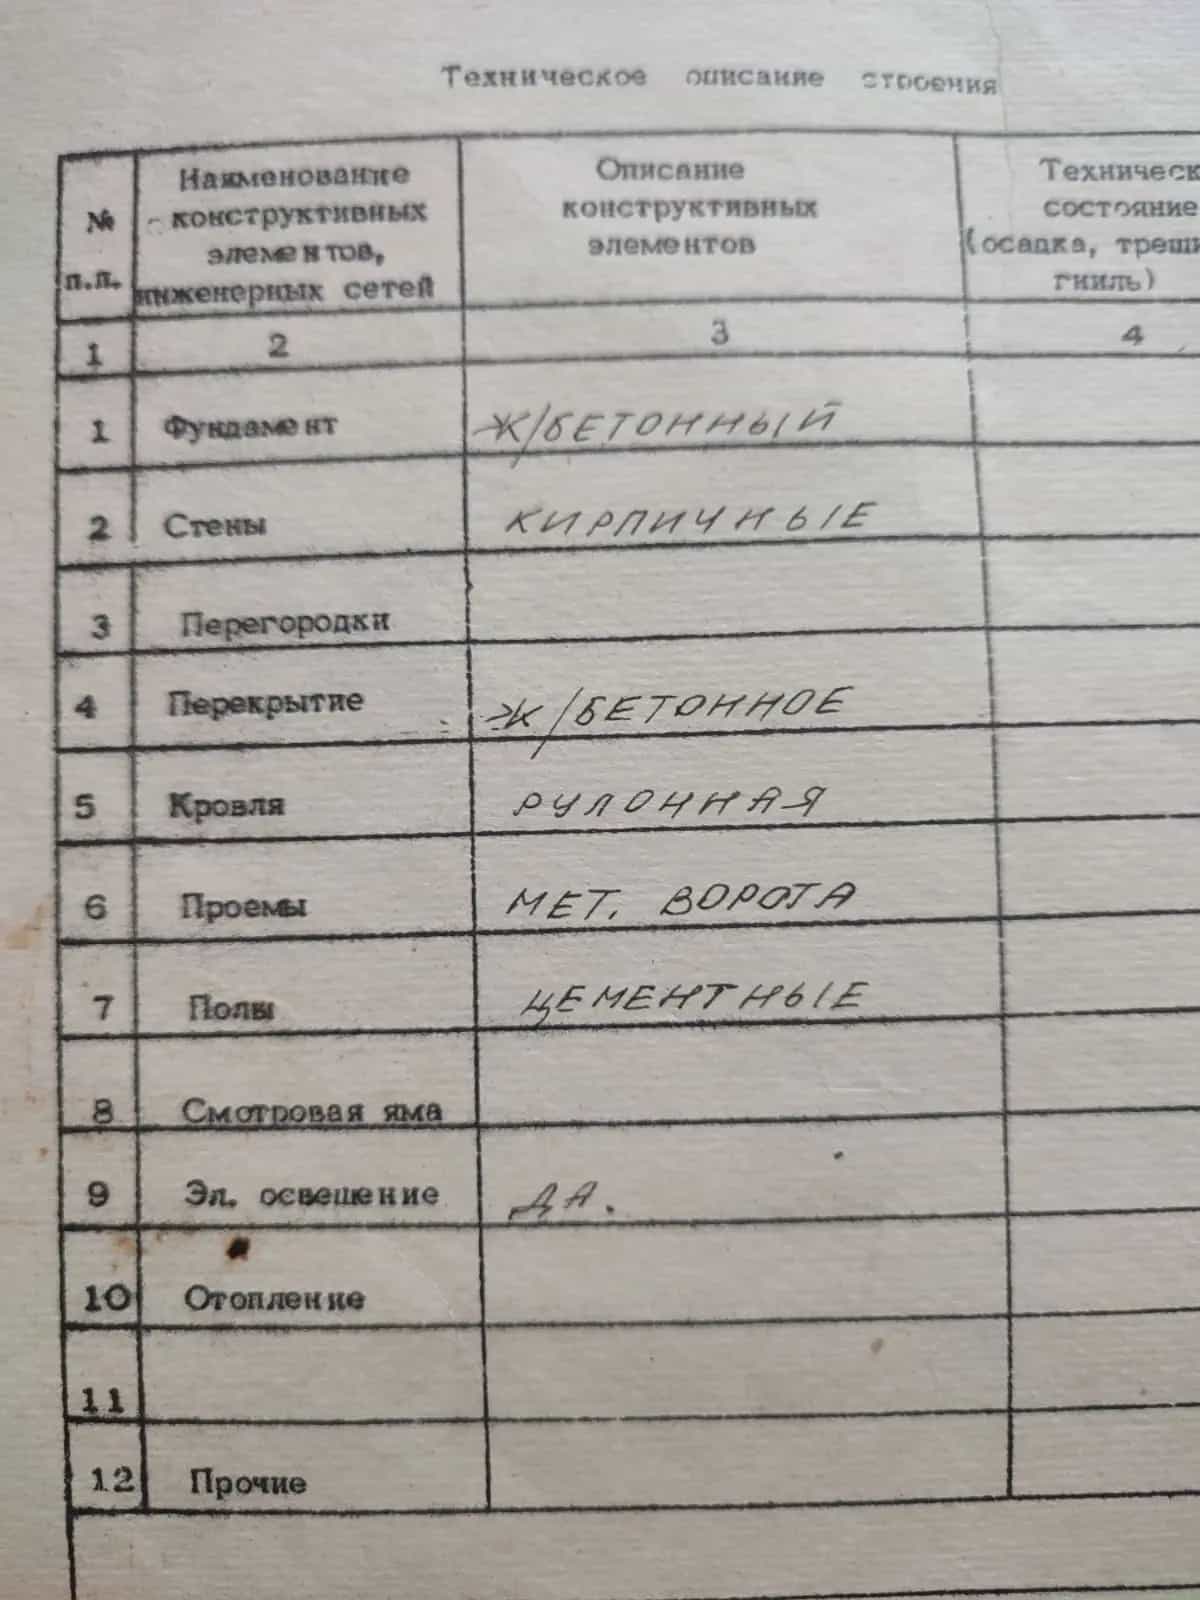 Техническое описание строения
№ п.п.
Наименование конструктивных элементов, инженерных сетей
Описание конструктивных элементов
Техническ состояние (осадка, трещи гниль)
1 2 3 4
1 Фундамент Ж/БЕТОННЫЙ
2 Стены КИРПИЧНЫЕ
3 Перегородки
4 Перекрытие Ж/БЕТОННОЕ
5 Кровля РУЛОННАЯ
6 Проемы МЕТ. ВОРОТА
7 Полы ЦЕМЕНТНЫЕ
8 Смотровая яма
9 Эл. освещение ДА.
10 Отопление
11
12 Прочие